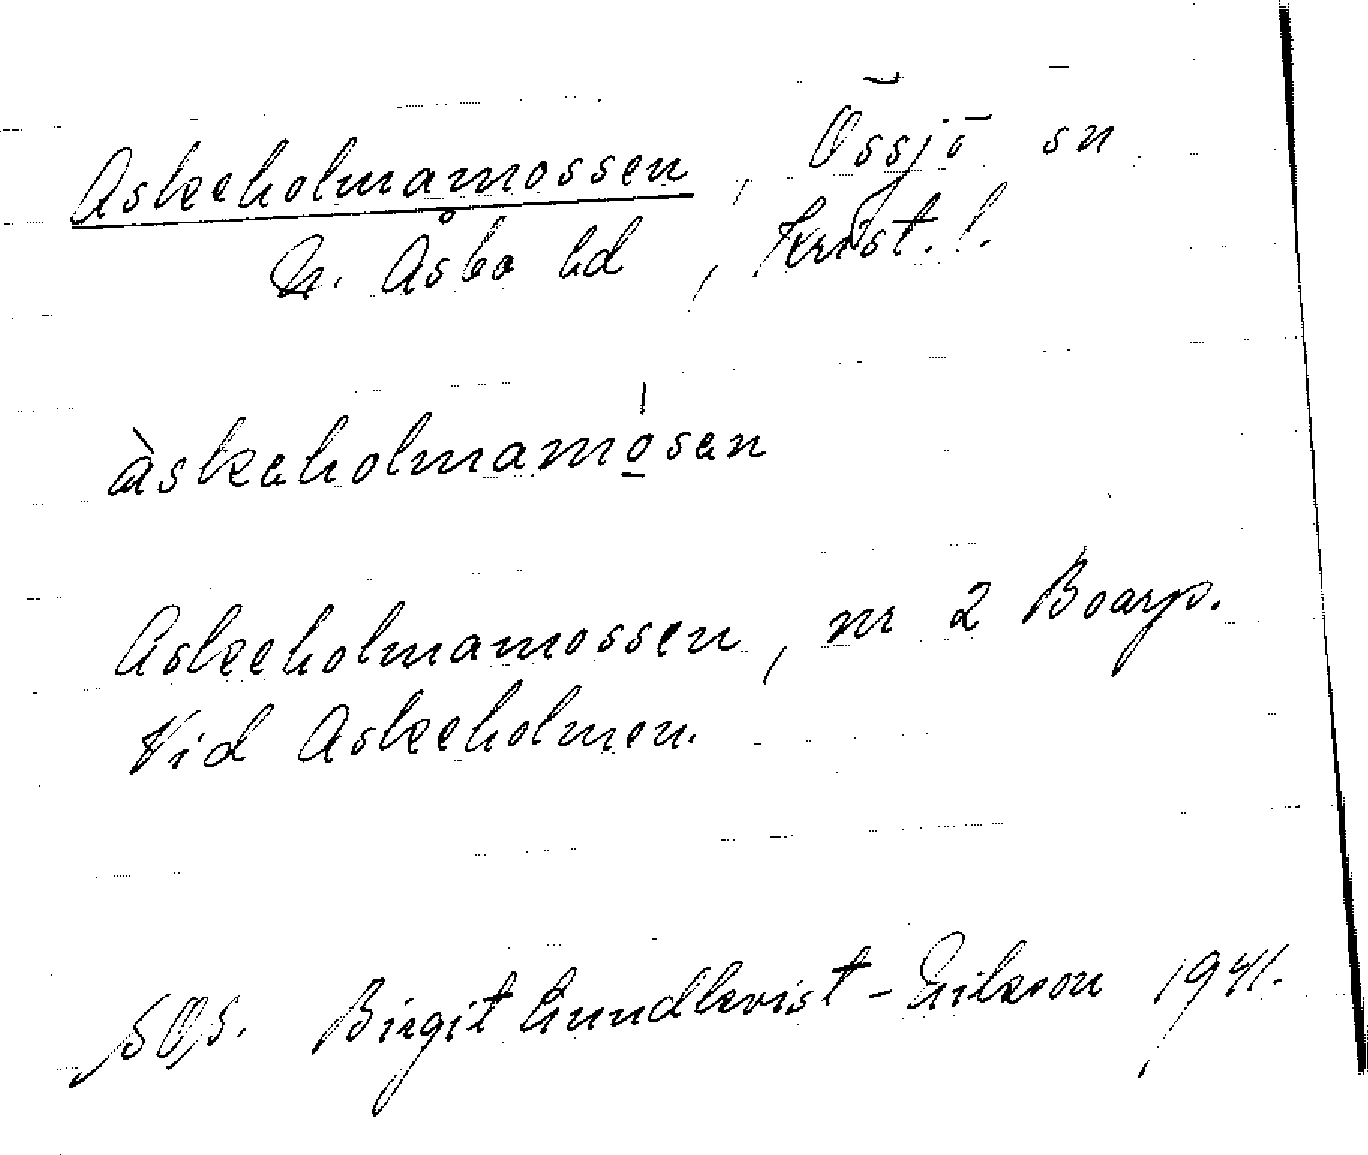 Askeholmamossen, Össjö sn
N. Åsbo hd, Krist. l.
àskəholmamósən
Askeholmamossen, nr 2 Boarp.
Vid Askeholmen.
SOS. Birgit Lundkvist-Erikson 1941.